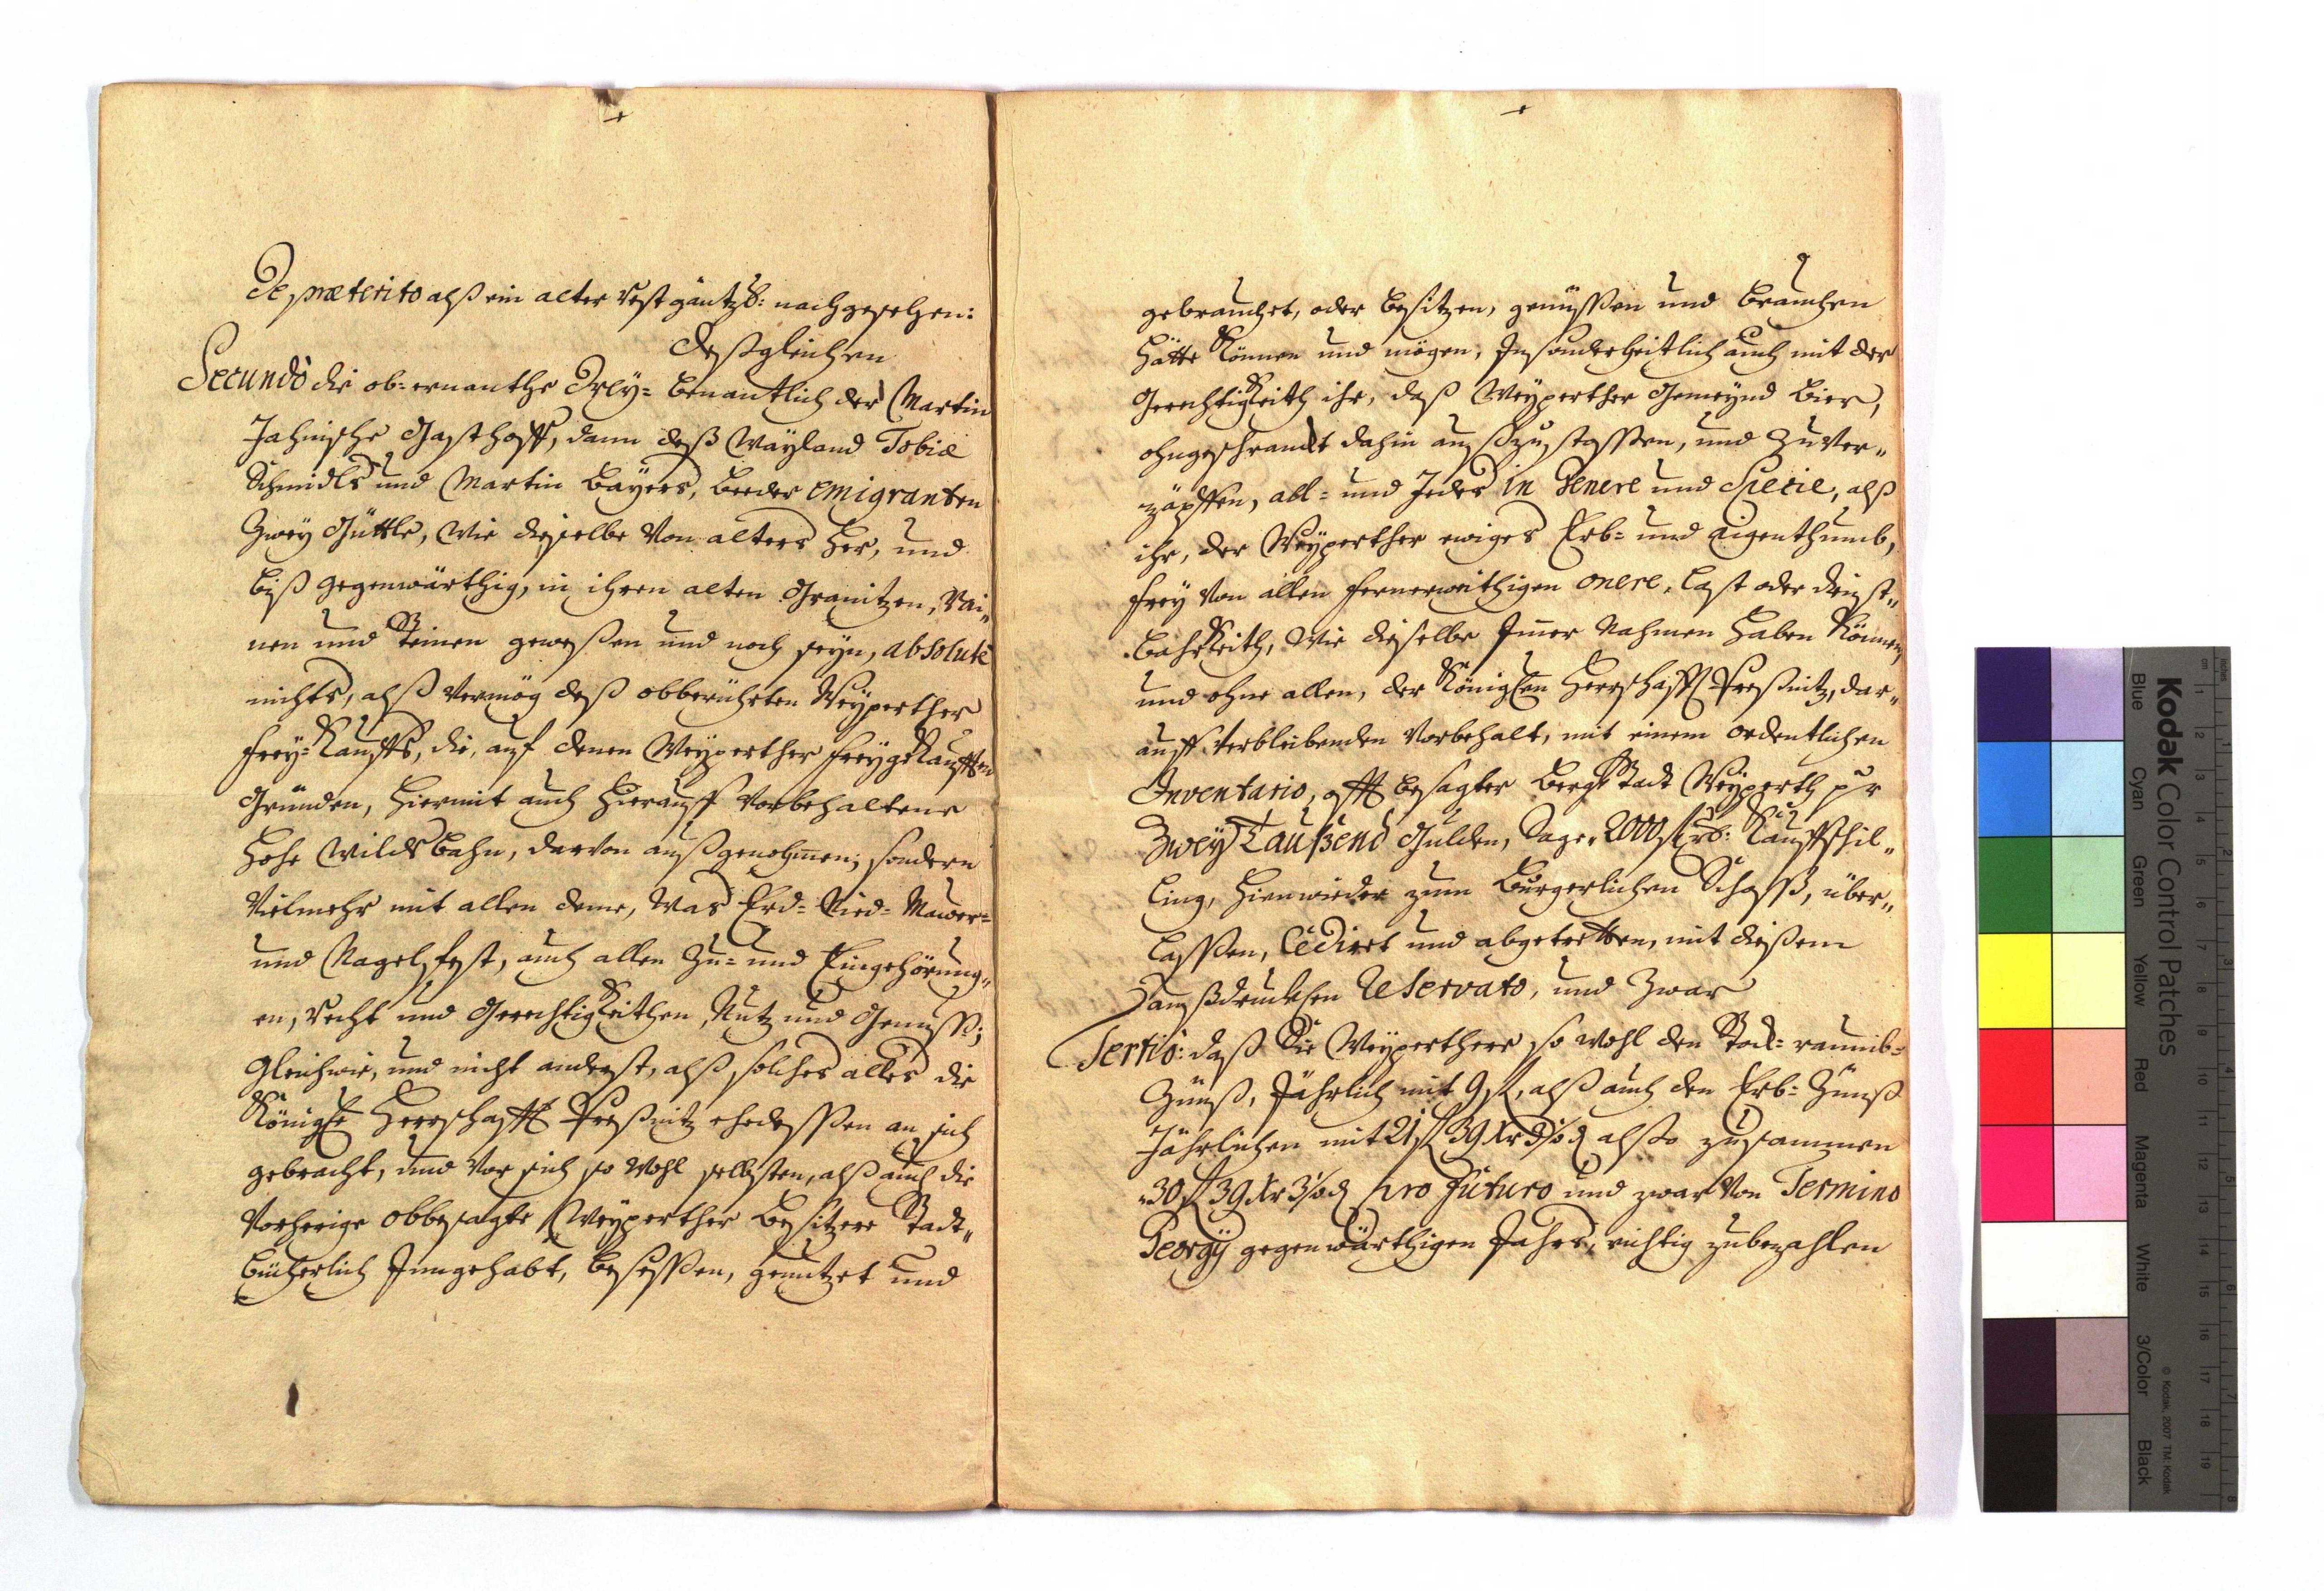 De præterito alß ein alter rest gäntzl: nachgesehen:
Deßgleichen
Secundò die ob-ernanthe Drey- benantlich der Martin
Jahnische Gasthoff, dann deß Wayland Tobiæ
Schmidls und Martin Bayers, beeder emigranten
Zwey Güttle, wie dieselbe von alters her, und
biß gegenwärthig, in ihren alten Granitzen, Rai„
nen und Steinen geweßen und noch seyn, absolutè
nichts, alß vermög deß obberührten Weyperther
Frey-Kauffs, die, auf denen Weyperther freygekaufften
Gründen, hiermit auch hierauff vorbehaltene
hohe Wildbahn, darvon außgenohmen; sondern
Vielmehr mit allen deme, Was Erd- Nied- Mauer-
und Nagelfest, auch allen Zu- und Eingehörung„
en, recht und Gerechtigkeithen, Nutz und Genuß;
gleichwie, und nicht anderst, alß solches alles die
Königle Herrschafft Preßnitz ehedessen an sich
gebracht, und vor sich so wohl selbsten, alß auch die
Vorherige obbesagte Weyperther Besitzere Stadt„
bücherlich Inngehabt, besessen, genutzet und
gebrauchet, oder besitzen, genüssen und brauchen
hätte können und mögen, Insonderheitlich auch mit der
Gerechtigkeith ihr, deß Weyperther Gemeynd Bier,
ohngeschranckt dahin außzustossen, und zu ver„
zäpffen, all- und Jedes in Genere und Specie, alß
ihr, der Weyperther ewiges Erb- und eigenthumb,
frey von allen fernerweithigen onere, Last oder dienst„
bahrkeith, Wie dieselbe Imer Nahmen haben können,
und ohne allen, der Königlen Herrschafft Preßnitz, dar„
auff verbleibenden Vorbehalt, mit einem ordentlichen
Inventario, offt besagter Bergstadt Weyperth pr
Zwey Taußend Gulden, Sage 2000 fl Kauffschil„
ling, hinwieder zum Burgerlichen Schoß, über„
lassen, Cediret und abgetretten, mit dießem
außdrucklen Reservato, und Zwar
Tertiò: daß die Weyperther so wohl den Stock-raumb-
Zünß, Jährlich mit 9 fl, alß auch den Erb-Zünß
Jährlichen mit 21 fl 39 Xr alßo zusammen
30 fl 39 Xr pro futuro und zwar von Termino
Georgÿ gegenwärthigen Jahrs, richtig zubezahlen
Kodak Color Control Patches
Blue Cyan Green Yellow Red Magenta White 3/Color Black
© Kodak, 2007 TM: Kodak